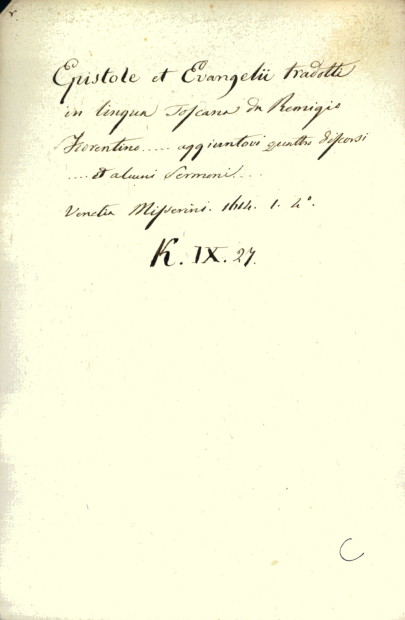 Epistole et Evangelii tradotte
in lingua Toscana da Remigio
Fiorentino..... aggiuntovi quattro discorsi
.... et alcuni Sermoni....
Venetia Misserini. 1614. 1. 4°.
K. IX. 27.
C